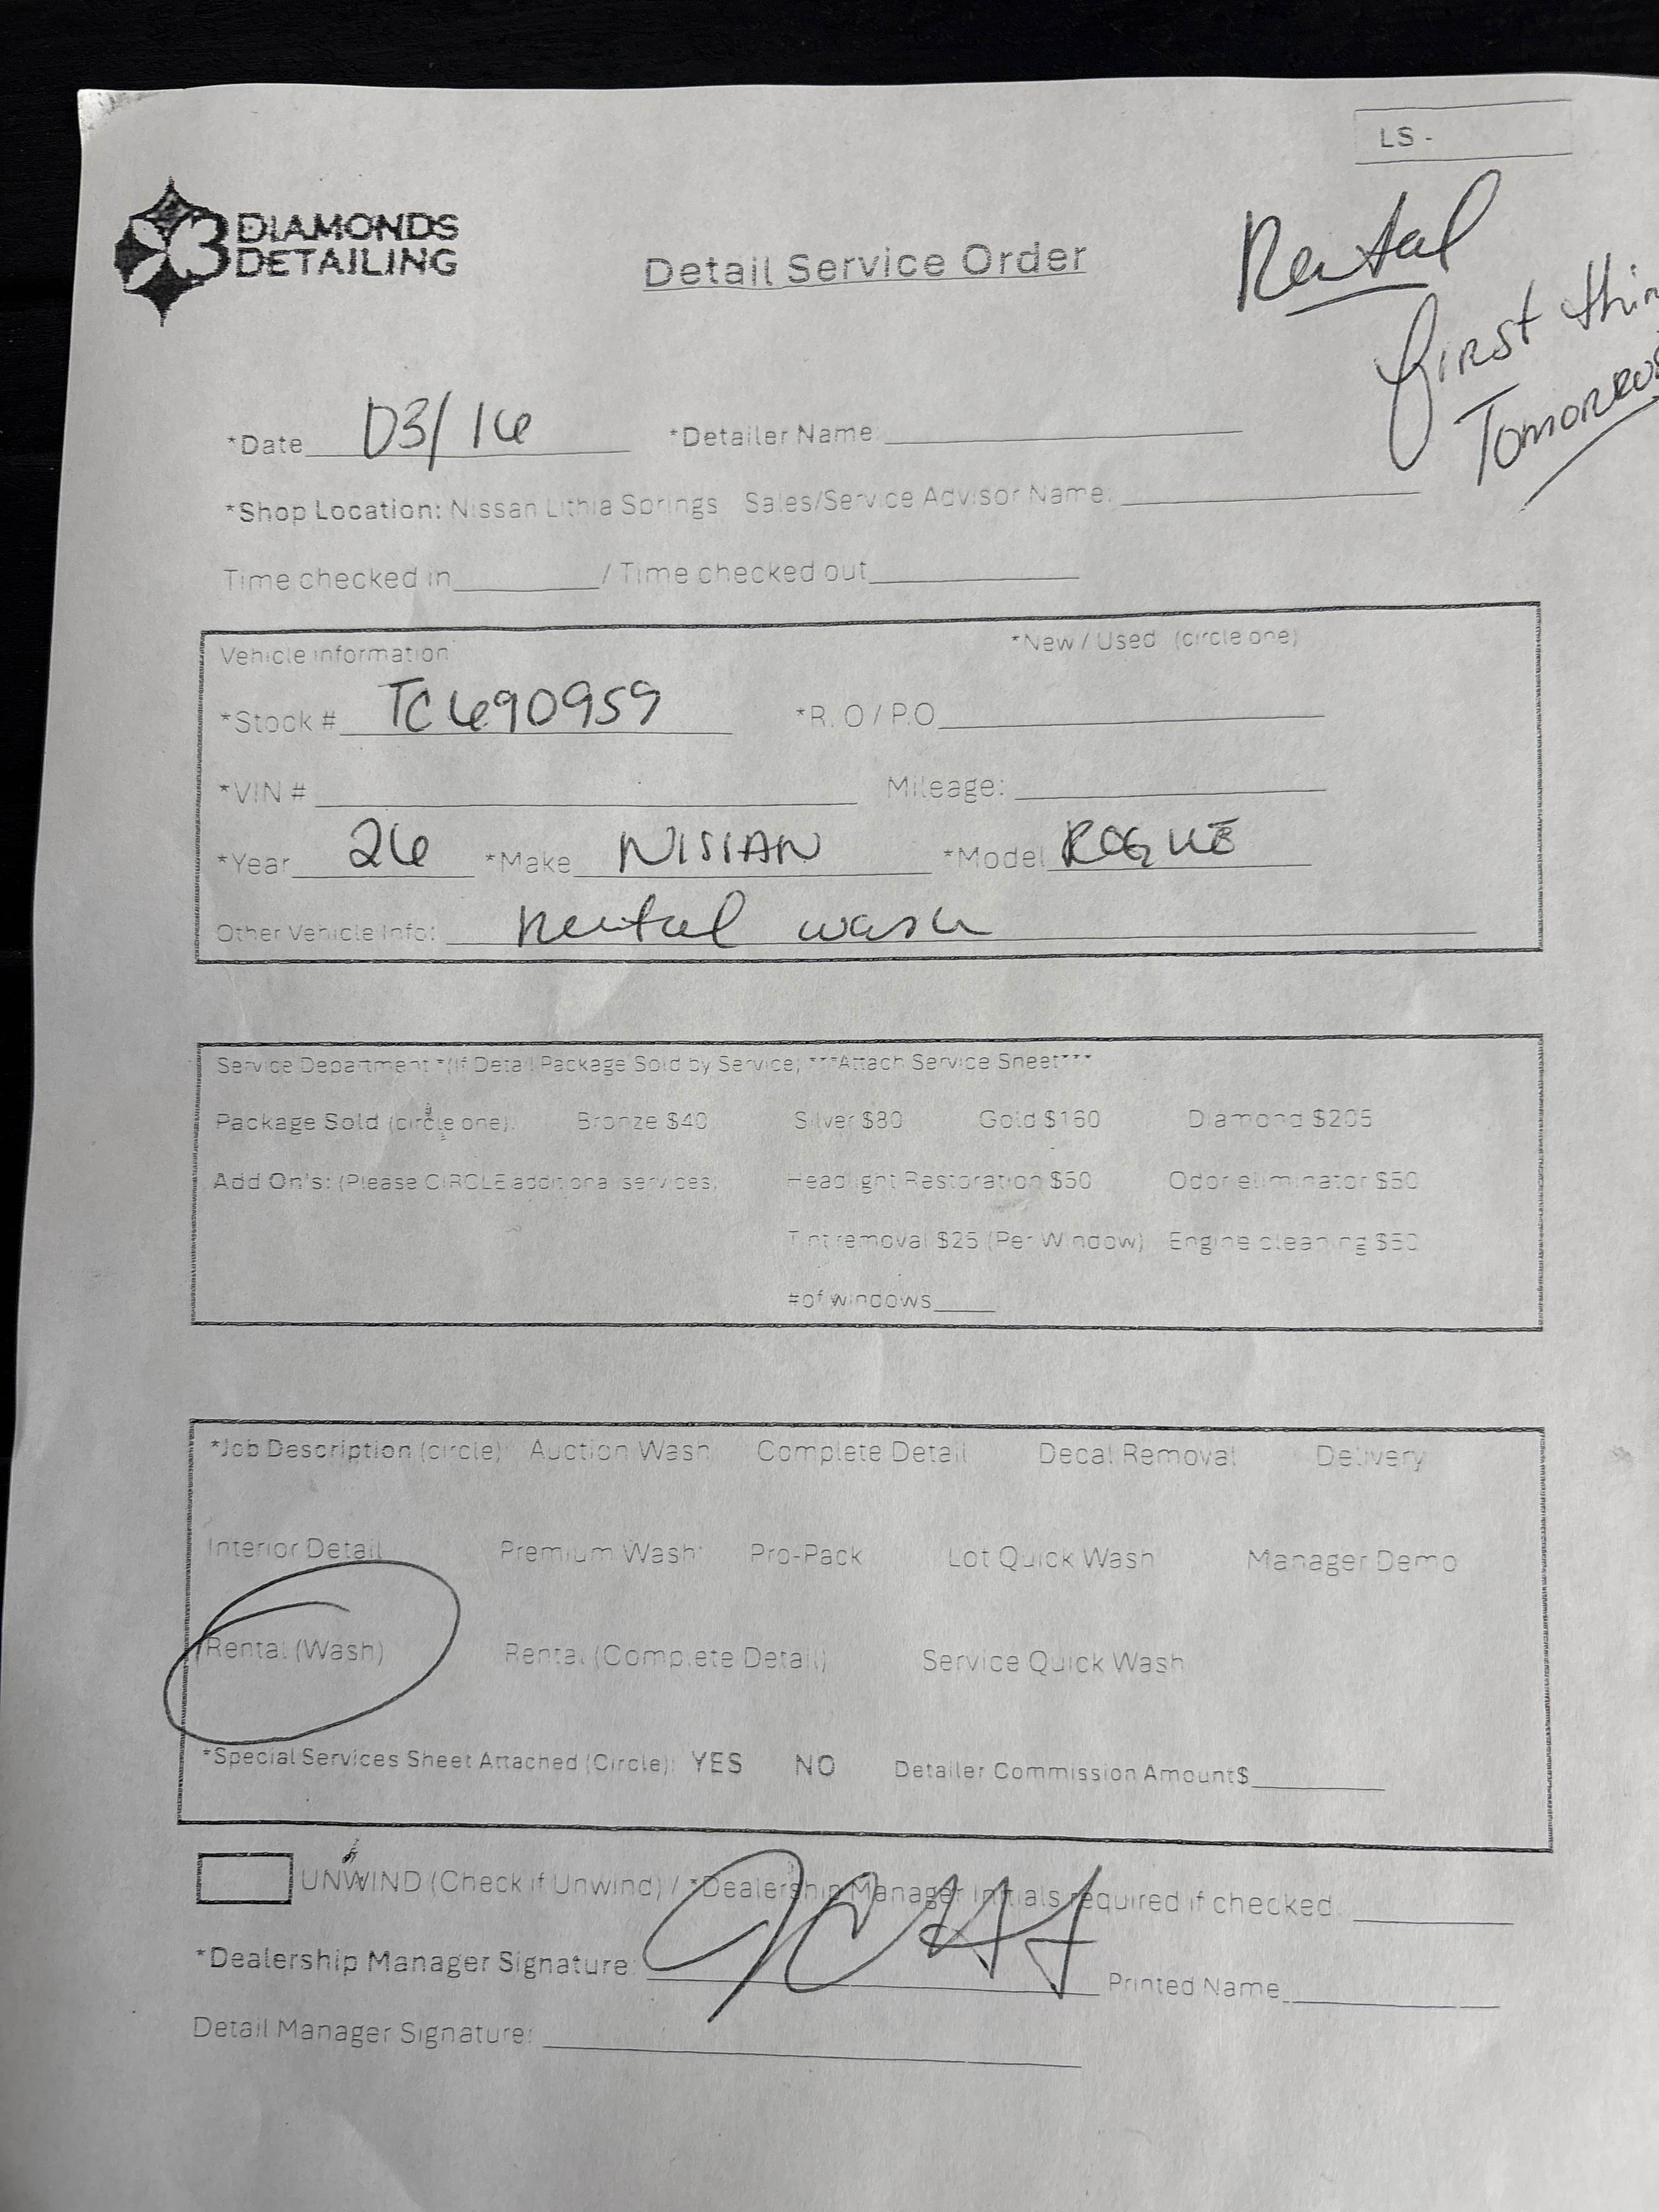 LS -
Rental
First thin
Tomorrow
3 DIAMONDS
DETAILING
Detail Service Order
*Date 03/16 *Detailer Name
*Shop Location: Nissan Lithia Springs Sales/Service Advisor Name:
Time checked in / Time checked out
Vehicle information *New / Used (circle one)
*Stock # TC690959 *R.O / P.O
*VIN # Mileage:
*Year 26 *Make NISSAN *Model ROGUE
Other Vehicle Info: Rental wash
Service Department *(If Detail Package Sold by Service) ***Attach Service Sheet***
Package Sold (circle one): Bronze $40 Silver $80 Gold $160 Diamond $205
Add On's: (Please CIRCLE additional services) Headlight Restoration $50 Odor eliminator $50
Tint removal $25 (Per Window) Engine cleaning $50
# of windows
*Job Description (circle) Auction Wash Complete Detail Decal Removal Delivery
Interior Detail Premium Wash Pro-Pack Lot Quick Wash Manager Demo
Rental (Wash) Rental (Complete Detail) Service Quick Wash
*Special Services Sheet Attached (Circle): YES NO Detailer Commission Amount$
UNWIND (Check if Unwind) / *Dealership Manager Initials required if checked.
*Dealership Manager Signature: Printed Name
Detail Manager Signature: